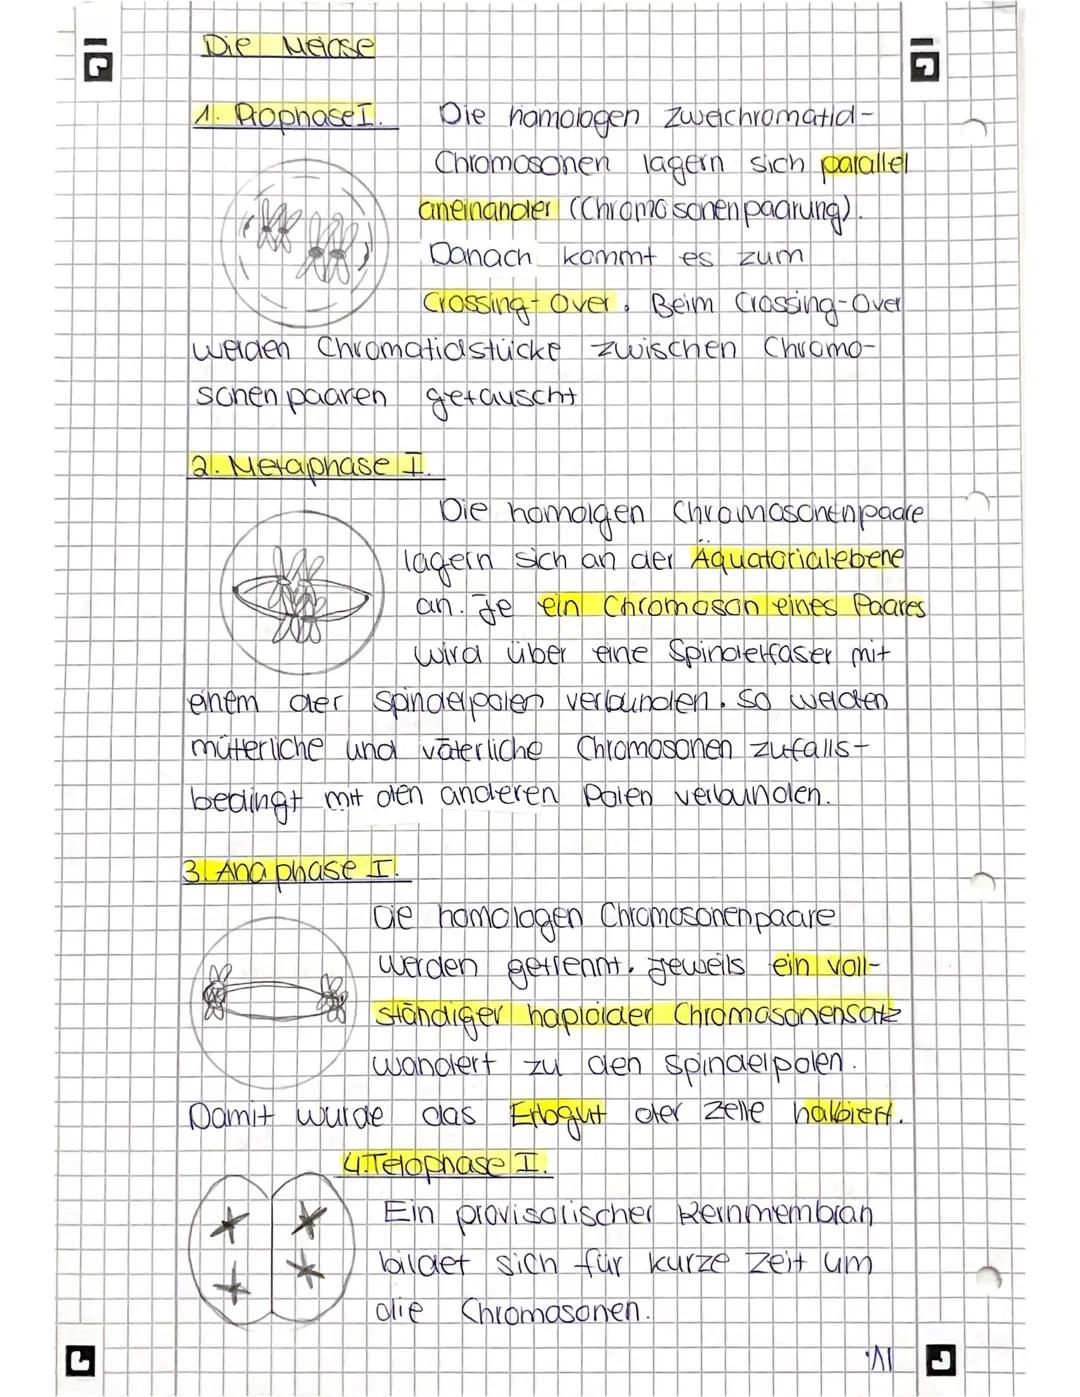 Die Meiose
1. Prophase I.
Die homologen Zweichromatid-
Chromosonen lagern sich parallel
aneinander (Chromosonenpaarung).
Danach kommt es zum
Crossing-Over. Beim Crossing-Over
werden Chromatidstücke zwischen Chromo-
sonenpaaren getauscht
2. Metaphase I.
Die homolgen Chromosonenpaare
lagern sich an der Äquatorialebene
an. Je ein Chromoson eines Paares
wird über eine Spindelfaser mit
einem der Spindelpolen verbunden. So werden
mütterliche und väterliche Chromosonen zufalls-
bedingt mit den anderen Polen verbunden.
3. Anaphase I.
Die homologen Chromosonenpaare
werden getrennt. Jeweils ein voll-
ständiger haploider Chromosonensatz
wandert zu den Spindelpolen.
Damit wurde das Erbgut der Zelle halbiert.
4. Telophase I.
Ein provisorischer Kernmembran
bildet sich für kurze Zeit um
die Chromosonen.